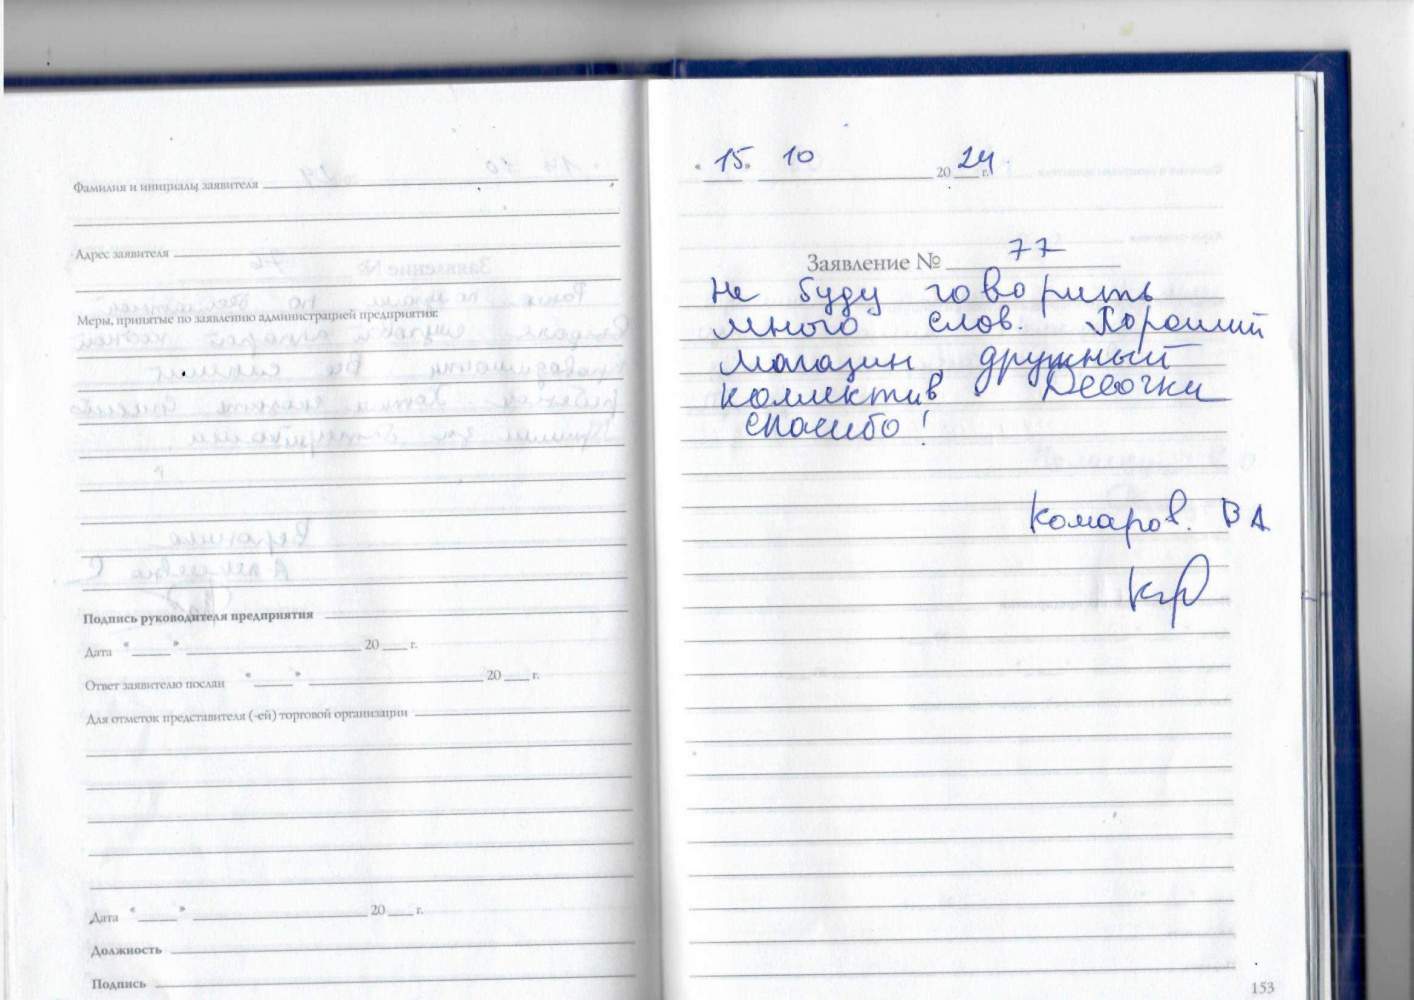 Фамилия и инициалы заявителя
Адрес заявителя
Меры, принятые по заявлению администрацией предприятия:
Подпись руководителя предприятия
Дата " " 20 г.
Ответ заявителю послан " " 20 г.
Для отметок представителя (-ей) торговой организации
Дата " " 20 г.
Должность
Подпись
"15" 10 2024 г.
Заявление № 77
Не буду говорить
много слов. Хороший
магазин, дружный
коллектив. Девочки
спасибо!
Комаров. В А
153